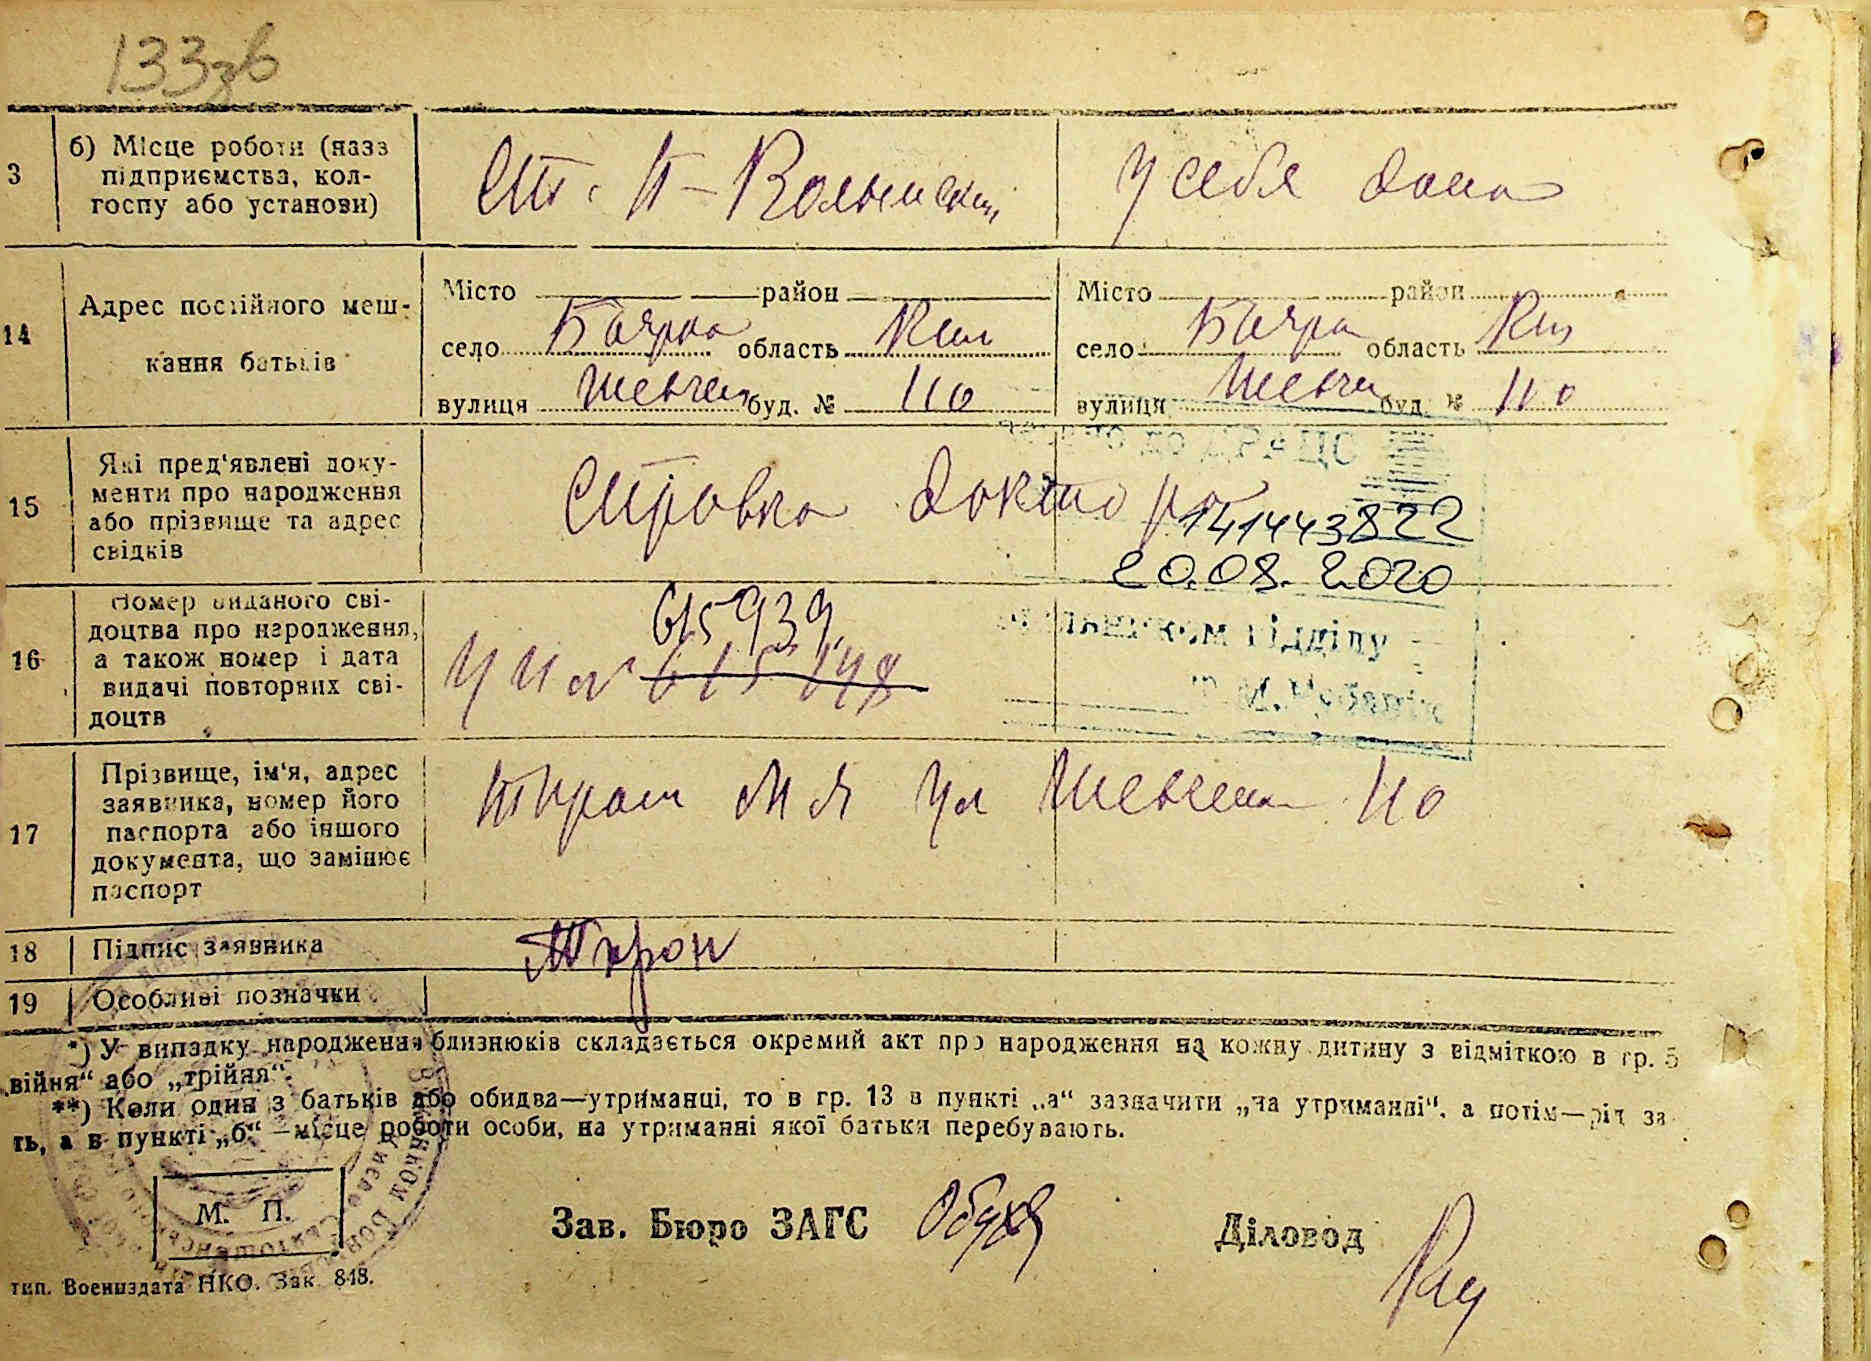 133зв
3 б) Місце роботи (назв
підприємства, кол-
госпу або установи)
Ст. П-Волынский
У себя дома
14 Адрес постійного меш-
кання батьків
Місто район
село Боярка область Киев
вулиця Шевчен буд. № 110
Місто район
село Боярк область Ки
вулиця Шевчен буд. № 110
15 Які пред'явлені доку-
менти про народження
або прізвище та адрес
свідків
Справка доктора
до ДРАЦС
141443822
20.08.2020
16 Номер виданого сві-
доцтва про народження,
а також номер і дата
видачі повторних сві-
доцтв
615939
УЦ № 615148
відділу
17 Прізвище, ім'я, адрес
заявника, номер його
паспорта або іншого
документа, що замінює
паспорт
М Я ул Шевченка 110
18 Підпис заявника
19 Особливі позначки
*) У випадку народження близнюків складається окремий акт про народження на кожну дитину з відміткою в гр. 5
війня“ або „трійня“.
**) Коли один з батьків або обидва—утриманці, то в гр. 13 в пункті „а“ зазначити „на утриманні“, а потім—рід за
ть, а в пункті „б“ —місце роботи особи, на утриманні якої батьки перебувають.
М. П.
Зав. Бюро ЗАГС
Діловод
тип. Воениздата НКО. Зак. 848.